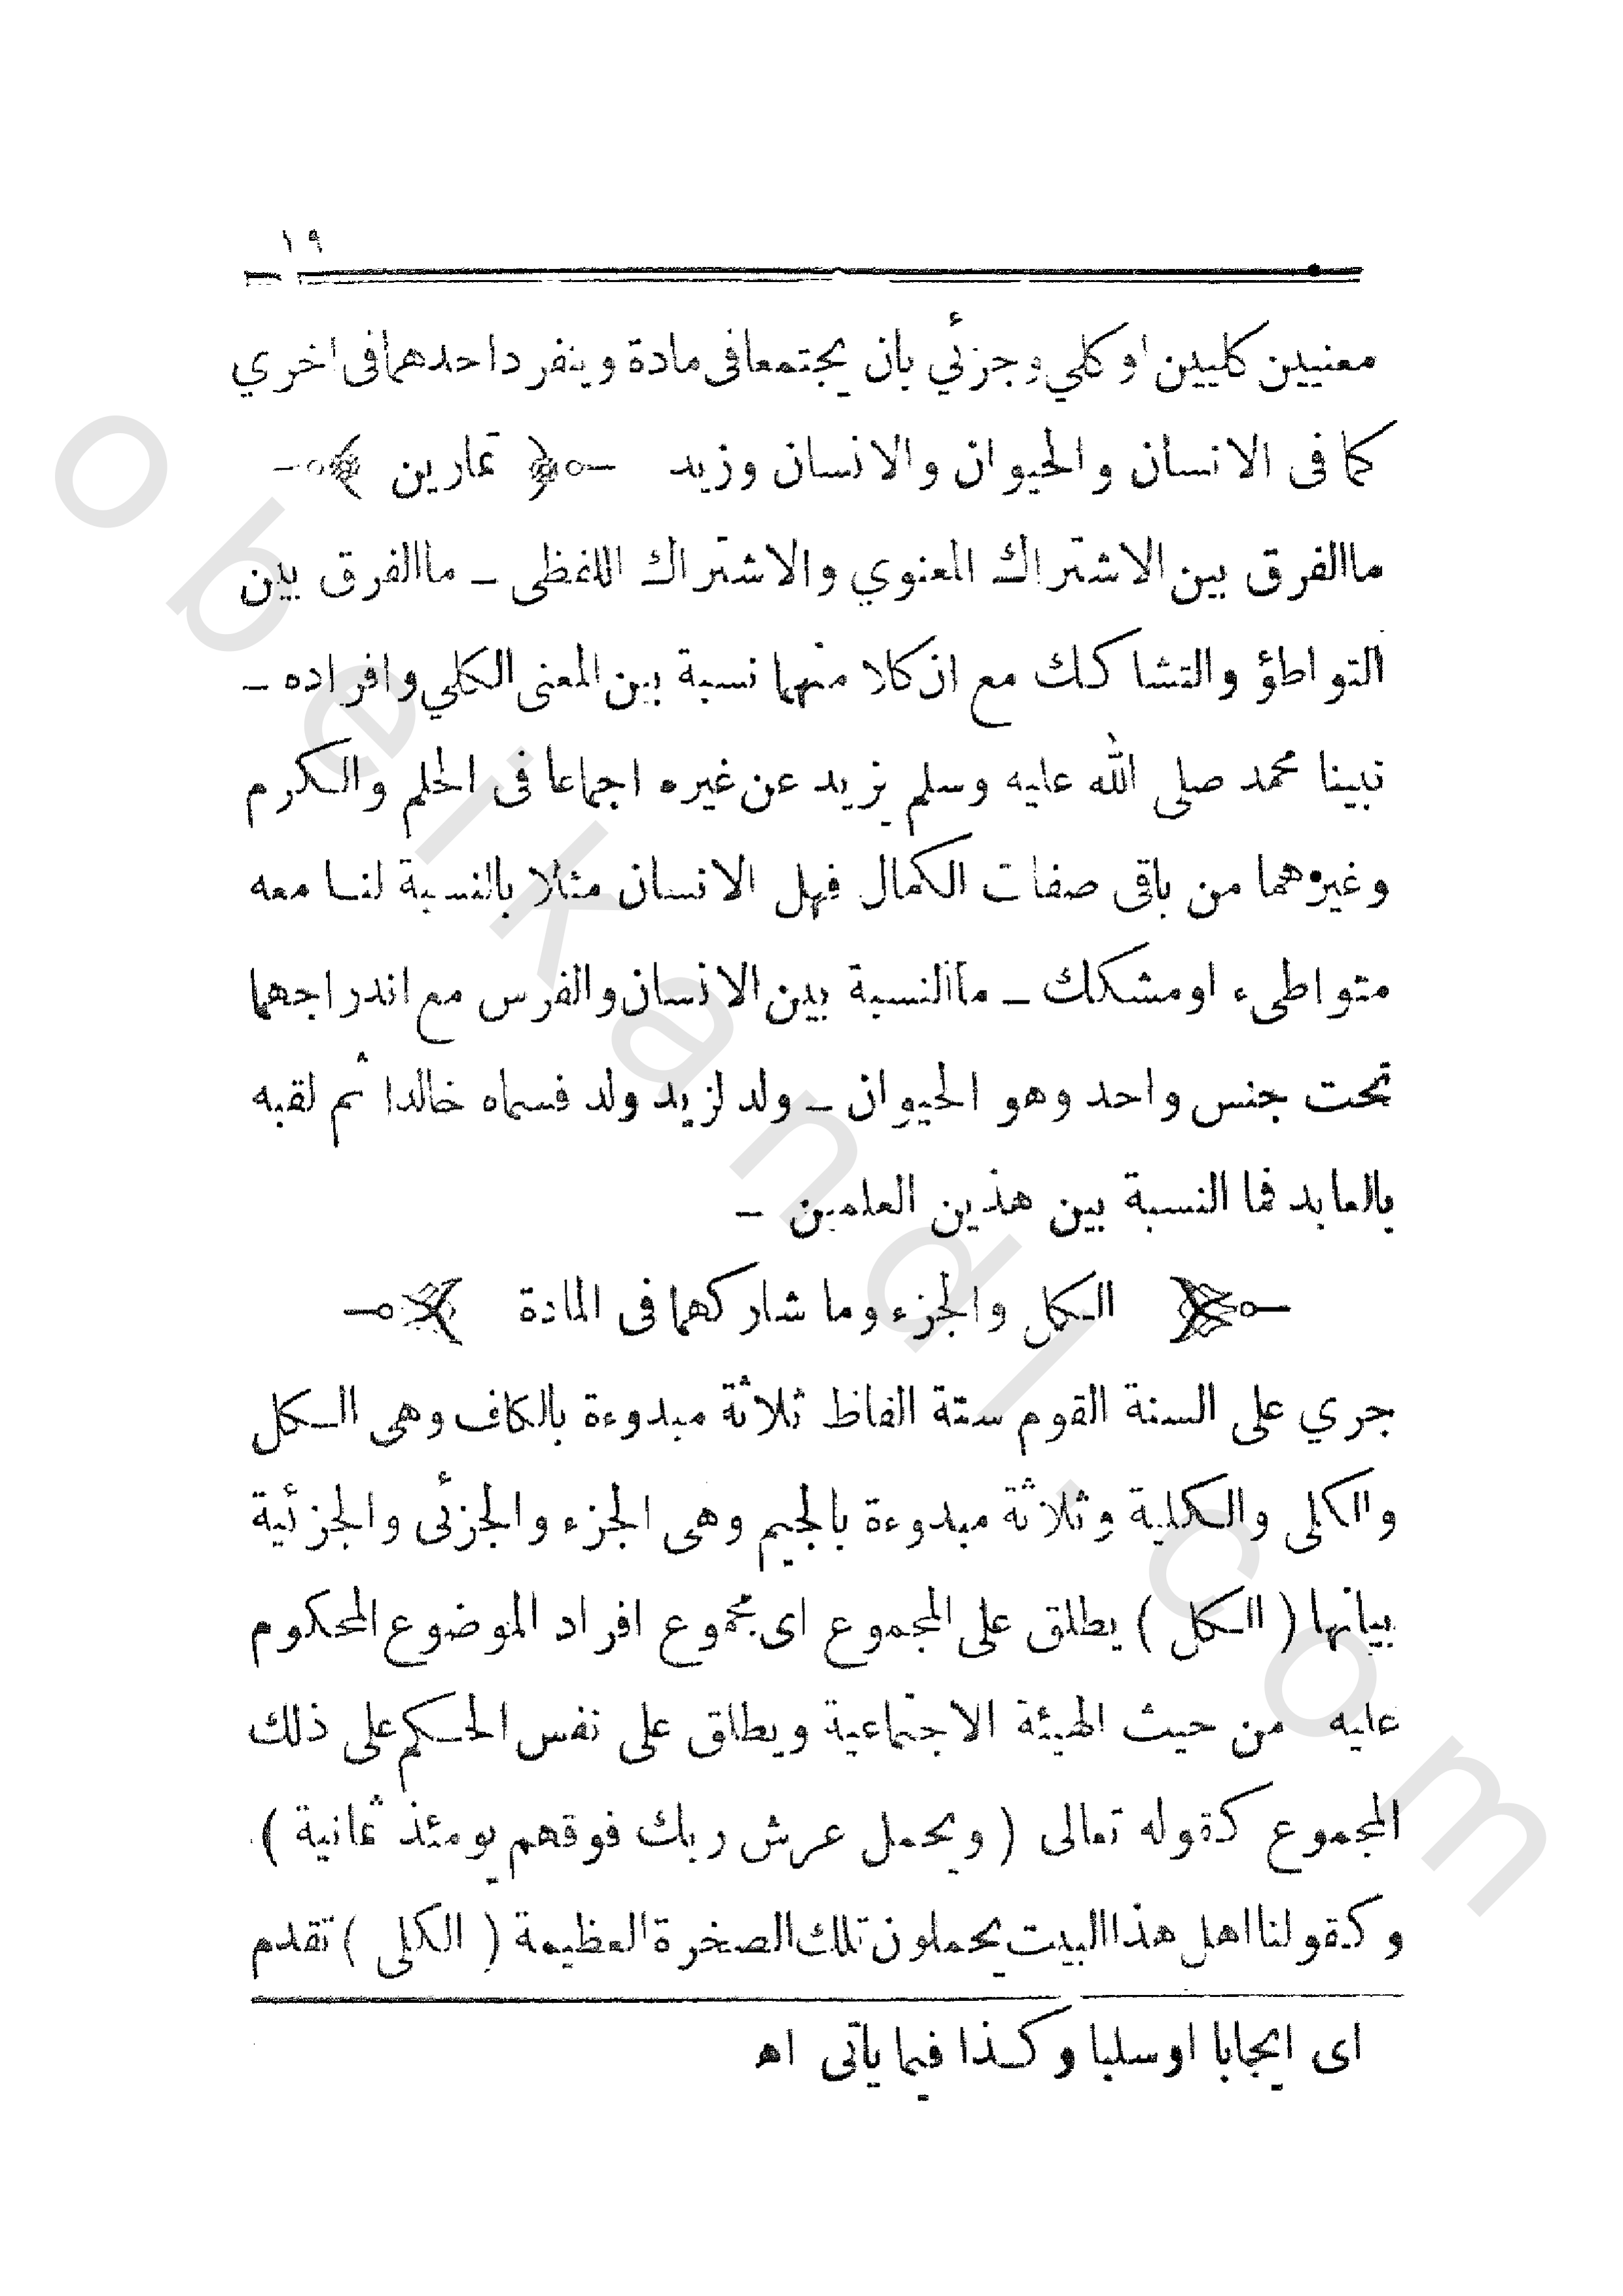 ١٩
معنيين كليين او كلي وجزئي بان يجتمعا فى مادة وينفرد احدهما فى اخري
كما فى الانسان والحيوان والانسان وزيد ﴿ تمارين ﴾
ما الفرق بين الاشتراك المعنوي والاشتراك اللفظى ــ ما الفرق بين
التواطؤ والتشاكك مع ان كلا منهما نسبة بين المعنى الكلي وافراده ــ
نبينا محمد صلى الله عليه وسلم يزيد عن غيره اجماعا فى الحلم والكرم
وغيرهما من باقى صفات الكمال فهل الانسان مثلا بالنسبة لنا معه
متواطىء او مشكك ــ ما النسبة بين الانسان والفرس مع اندراجهما
تحت جنس واحد وهو الحيوان ــ ولد لزيد ولد فسماه خالدا ثم لقبه
بالعابد فما النسبة بين هذين العلمين ــ
﴿ الكل والجزء وما شاركهما فى المادة ﴾
جري على السنة القوم ستة الفاظ ثلاثة مبدوءة بالكاف وهى الكل
والكلى والكلية وثلاثة مبدوءة بالجيم وهى الجزء والجزئى والجزئية
بيانها ( الكل ) يطلق على المجموع اى مجموع افراد الموضوع المحكوم
عليه من حيث الهيئة الاجتماعية ويطلق على نفس الحكم على ذلك
المجموع كقوله تعالى ( ويحمل عرش ربك فوقهم يومئذ ثمانية ) .
وكقولنا اهل هذا البيت يحملون تلك الصخرة العظيمة ( الكلى ) تقدم
اى ايجابا او سلبا وكذا فيما يأتى اه
obeikandl.com